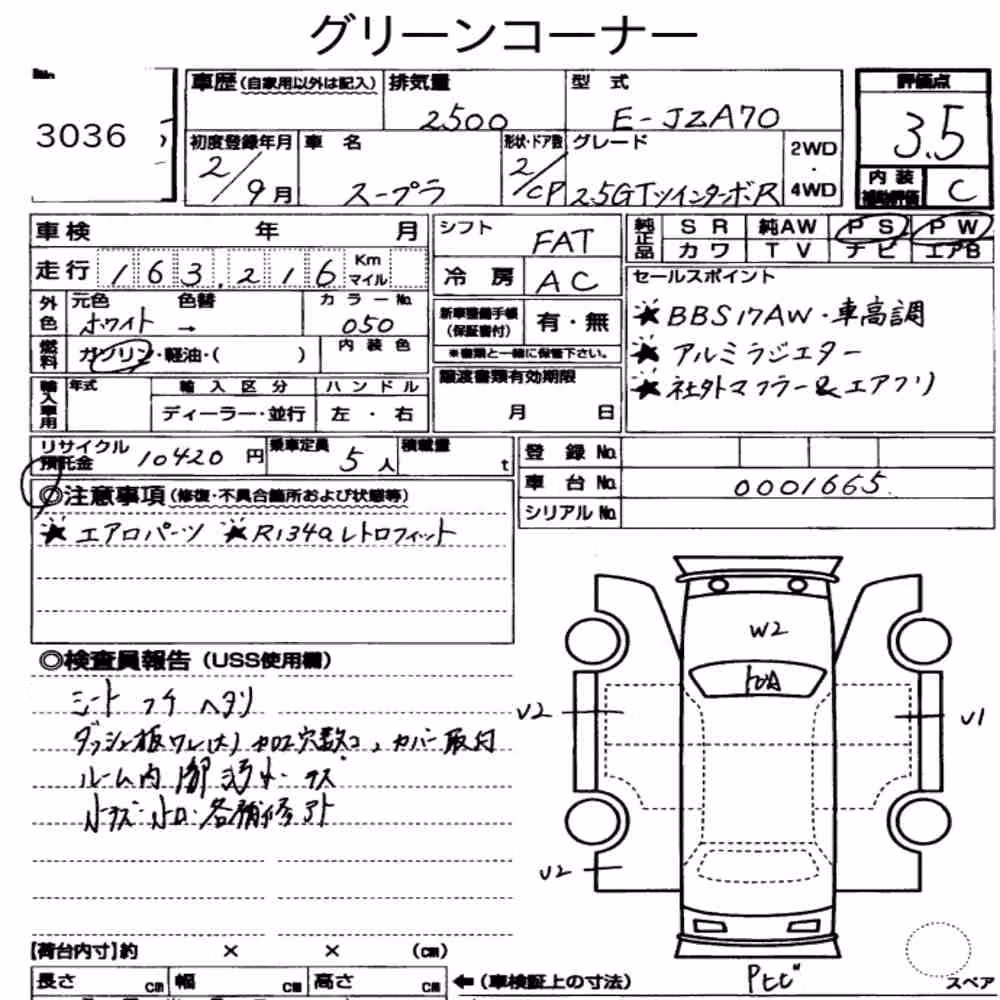 グリーンコーナー
3036
車歴(自家用以外は記入) 排気量 2500 型式 E-JZA70 評価点 3.5
初度登録年月 2/9月 車名 スープラ 形状・ドア数 2/CP グレード 2.5GTツインターボR 2WD・4WD 内装補助評価 C
車検 年 月 シフト FAT 純正品 SR 純AW PS PW
カワ TV ナビ エアB
走行 163,216 Km マイル 冷房 AC
セールスポイント
外色 元色 ホワイト 色替 → カラーNo. 050
新車整備手帳(保証書付) 有・無
★BBS17AW・車高調
燃料 ガソリン・軽油・( ) 内装色
※書類と一緒に保管下さい。
★アルミラジエター
★社外マフラー&エアフリ
輸入車用 年式 輸入区分 ハンドル 譲渡書類有効期限
ディーラー・並行 左・右 月 日
リサイクル預託金 10420円 乗車定員 5人 積載量 t
登録No.
車台No. 0001665
シリアルNo.
◎注意事項(修復・不具合箇所および状態等)
★エアロパーツ ★R134aレトロフィット
◎検査員報告(USS使用欄)
シート コゲ ヘタリ
ダッシュ板ワレ(大) カロセ穴数コ、カバー取付
ルーム内
小キズ 小ヘコ 各補修アト
W2
V2
V1
V2
Pヒビ
スペア
【荷台内寸】約 × × (cm)
長さ cm 幅 cm 高さ cm ←(車検証上の寸法)